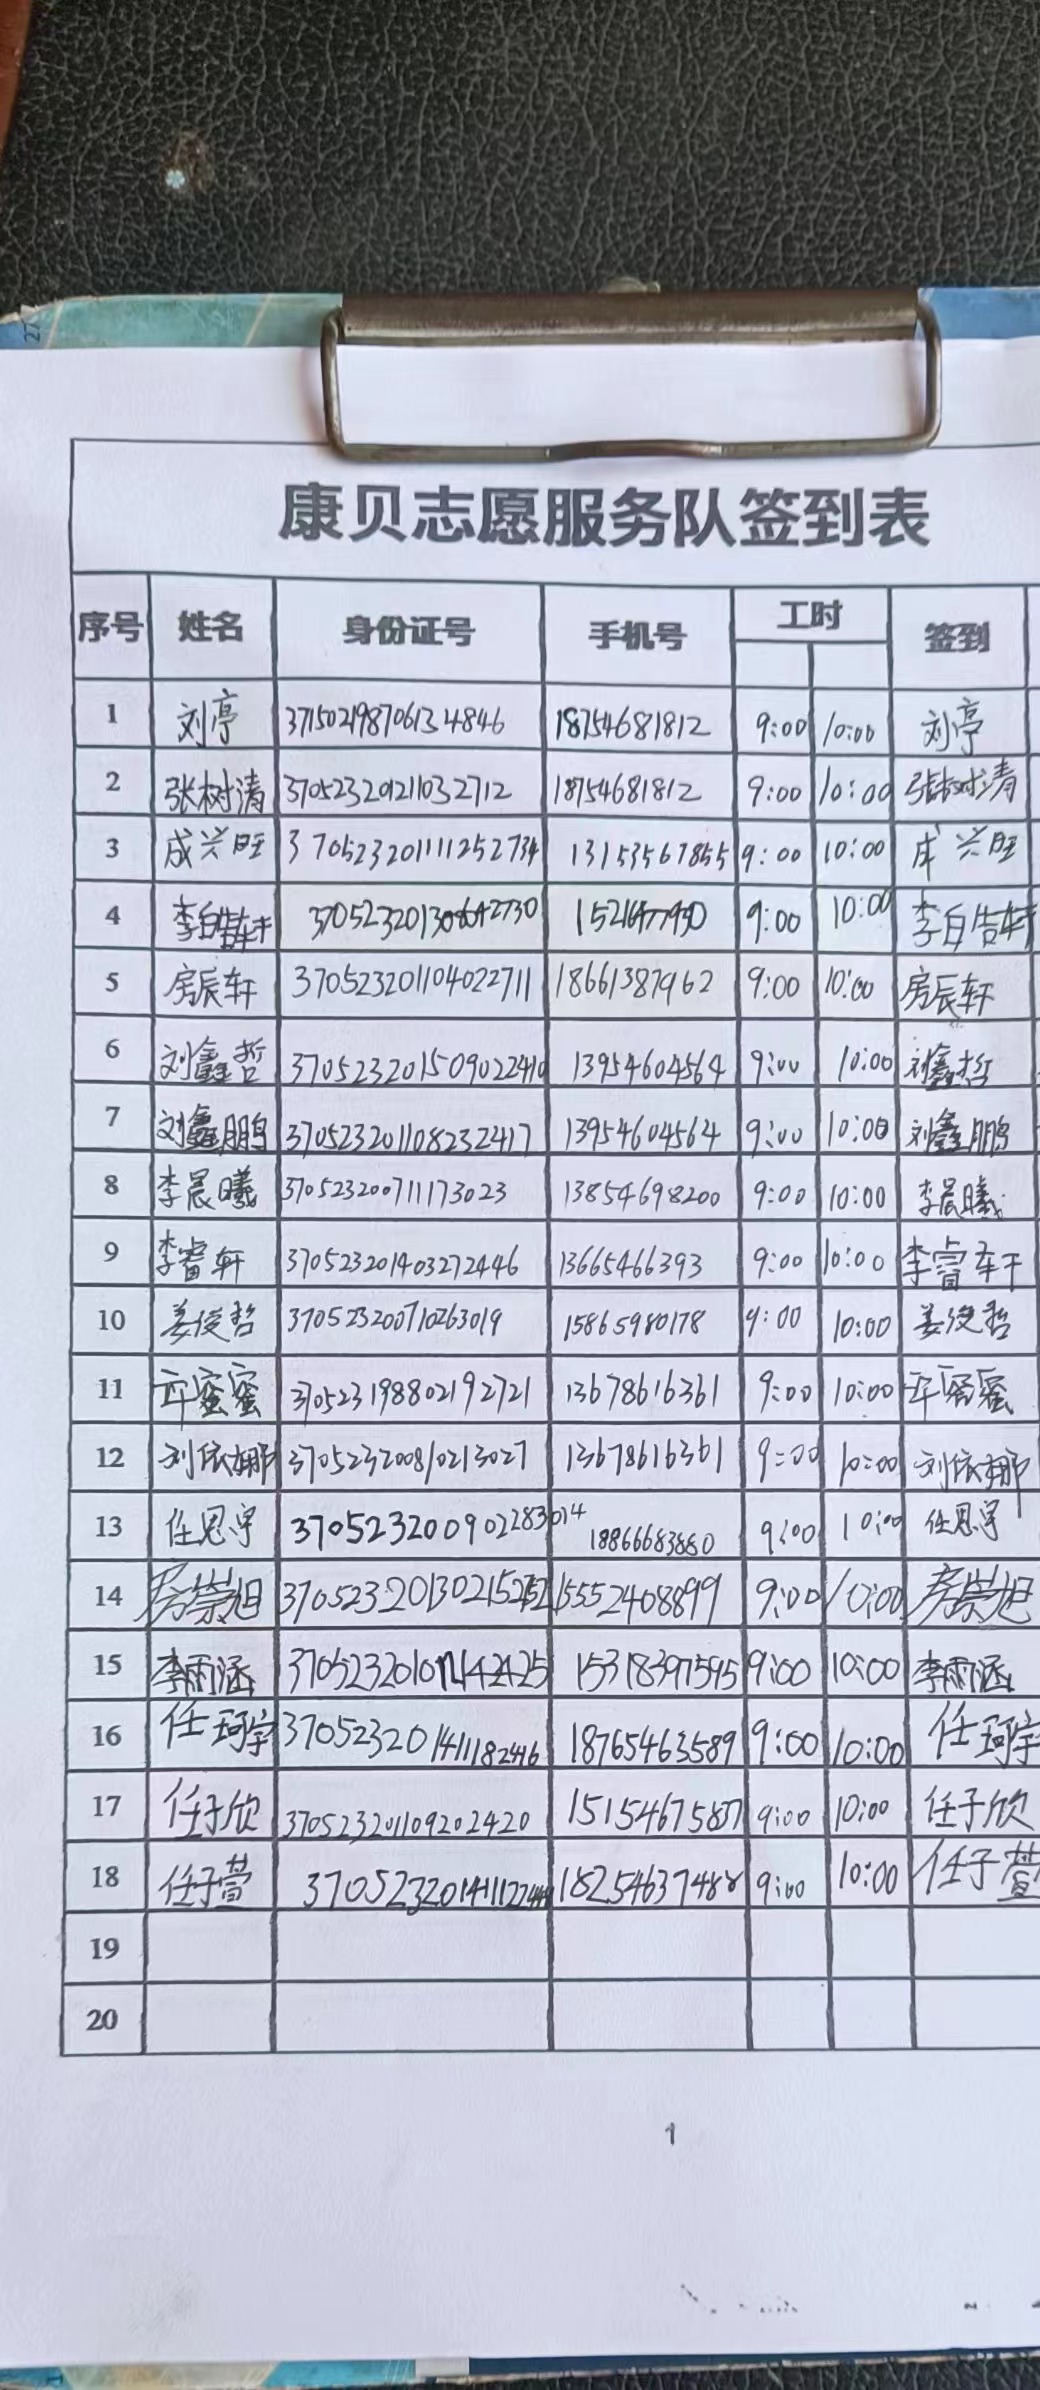 康贝志愿服务队签到表
序号 姓名 身份证号 手机号 工时 签到
1 刘亭 371502198706134846 18754681812 9:00 10:00 刘亭
2 张树清 370523201211032712 18754681812 9:00 10:00 张树清
3 成兴旺 370523201111252734 13153567855 9:00 10:00 成兴旺
4 9:00 10:00
5 房辰轩 370523201104022711 18661387962 9:00 10:00 房辰轩
6 刘鑫哲 370523201509022410 13954604564 9:00 10:00 刘鑫哲
7 刘鑫鹏 370523201108232417 13954604564 9:00 10:00 刘鑫鹏
8 李晨曦 370523200711173023 13854698200 9:00 10:00 李晨曦
9 李睿轩 370523201403272446 13665466393 9:00 10:00 李睿轩
10 姜俊哲 370523200710263019 15865980178 9:00 10:00 姜俊哲
11 蜜蜜 370523198802192721 13678616361 9:00 10:00 蜜蜜
12 刘依娜 370523200810213027 13678616361 9:00 10:00 刘依娜
13 任思宇 370523200902283014 18866683880 9:00 10:00 任思宇
14 房崇旭 15552408899 9:00 10:00 房崇旭
15 李雨涵 15318397595 9:00 10:00 李雨涵
16 任珂宇 370523201411182416 18765463589 9:00 10:00 任珂宇
17 任子欣 370523201109202420 15154675837 9:00 10:00 任子欣
18 任子萱 9:00 10:00 任子萱
19
20
1